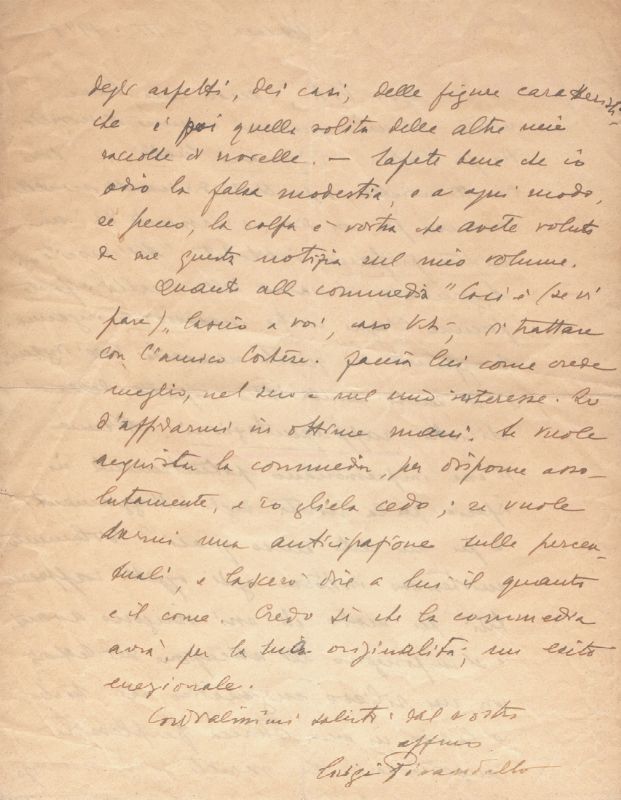 degli aspetti, dei casi, delle figure caratteristi-
che è poi quella solita delle altre mie
raccolte di novelle. — Sapete bene che io
odio la falsa modestia, e a ogni modo,
se pecco, la colpa è vostra che avete voluto
da me questa notizia sul mio volume.
Quanto alla commedia "Così è (se vi
pare)„ lascio a voi, caro di trattare
con l'amico Faccia lui come crede
meglio, nel suo e nel mio interesse. So
d'affidarmi in ottime mani. Se vuole
acquistar la commedia, per disporne asso-
lutamente, e io gliela cedo; se vuole
darmi una anticipazione sulle percen-
tuali, e lascerò dire a lui il quanto
e il come. Credo sì che la commedia
avrà, per la sua originalità, un esito
eccezionale.
Cordialissimi saluti dal vostro
affmo
Luigi Pirandello